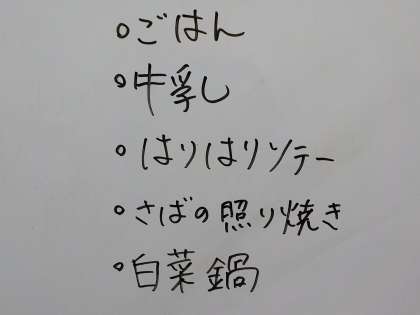 。ごはん
。牛乳
。はりはりソテー
。さばの照り焼き
。白菜鍋